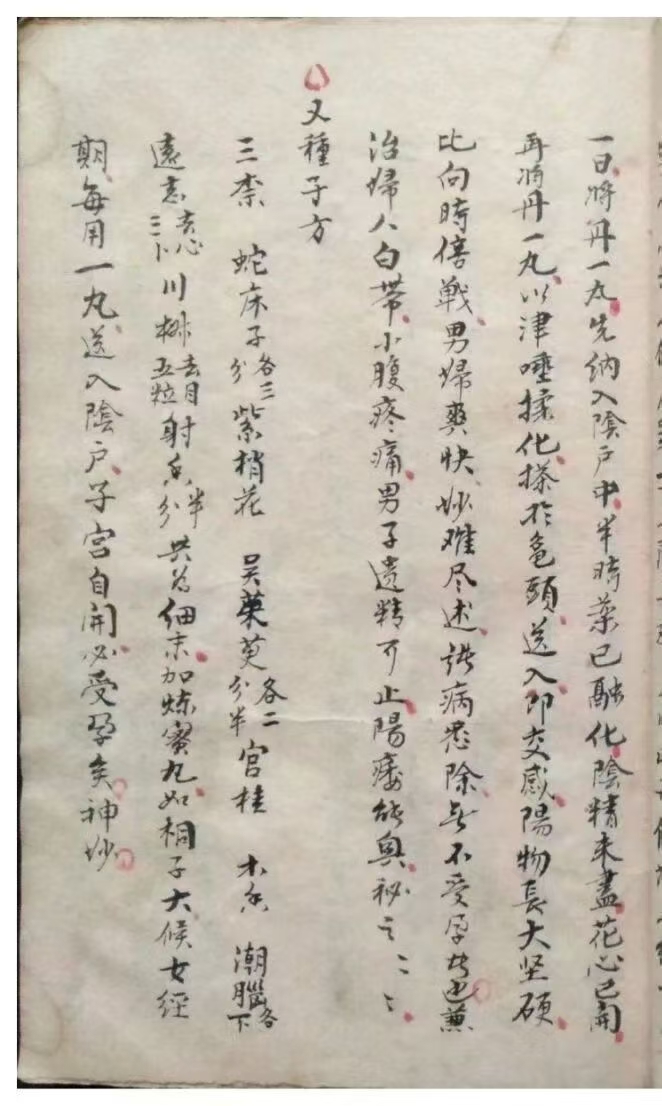 一日将丹一丸先纳入陰戸中半時藥已融化陰精未盡花心已開
再将丹一丸以津唾揉化搽扵龟頭送入即交感陽物長大坚硕
比向時倍戰男婦爽快妙难尽述諸病悉除无不受孕者也兼
治婦人白带小腹疼痛男子遗精可止陽痿能興秘之〻〻
又種子方
三柰 蛇床子各三分 紫梢花 吴茱萸各二分半 官桂 木香 潮腦各下
遠志去心三卜 川椒去目五粒 射香半分 共为细末加炼蜜丸如桐子大候女經
期每用一丸送入陰户子宫自開必受孕矣神妙